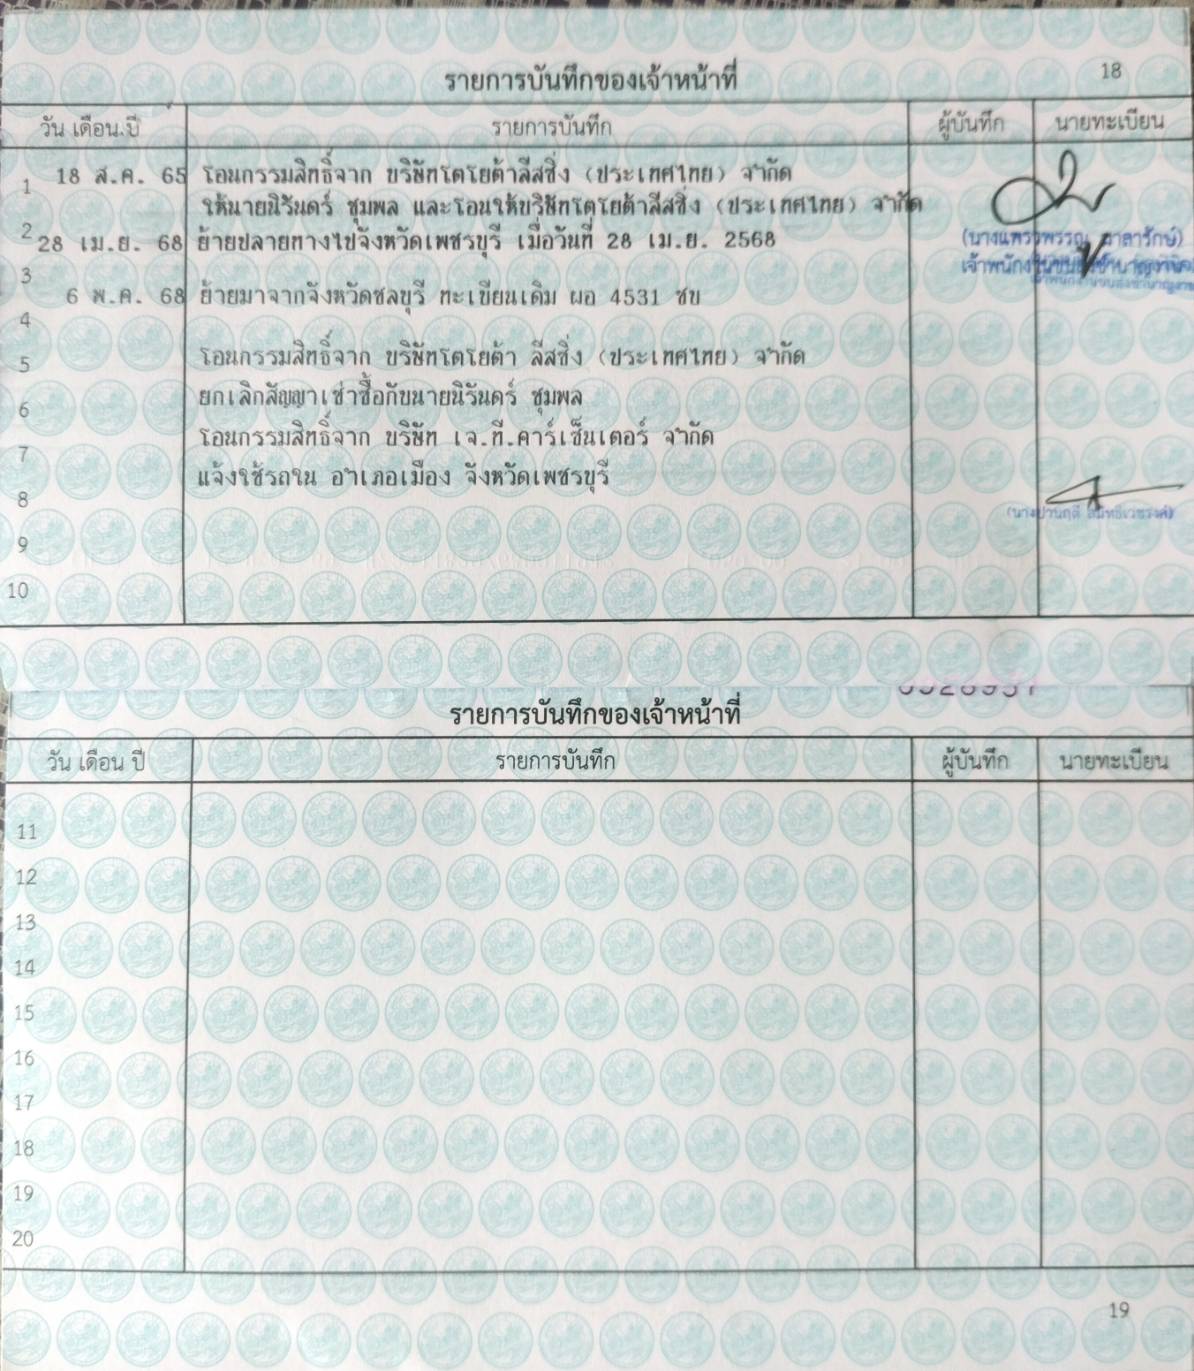 18
รายการบันทึกของเจ้าหน้าที่
วัน เดือน ปี รายการบันทึก ผู้บันทึก นายทะเบียน
1 18 ส.ค. 65 โอนกรรมสิทธิ์จาก บริษัทโตโยต้าลีสซิ่ง (ประเทศไทย) จำกัด
ให้นายนิรันดร์ ชุมพล และโอนให้บริษัทโตโยต้าลีสซิ่ง (ประเทศไทย) จำกัด
2 28 เม.ย. 68 ย้ายปลายทางไปจังหวัดเพชรบุรี เมื่อวันที่ 28 เม.ย. 2568
3
6 พ.ค. 68 ย้ายมาจากจังหวัดชลบุรี ทะเบียนเดิม ผอ 4531 ชบ
4
5 โอนกรรมสิทธิ์จาก บริษัทโตโยต้า ลีสซิ่ง (ประเทศไทย) จำกัด
6 ยกเลิกสัญญาเช่าซื้อกับนายนิรันดร์ ชุมพล
7 โอนกรรมสิทธิ์จาก บริษัท เจ.ที.คาร์เซ็นเตอร์ จำกัด
8 แจ้งใช้รถใน อำเภอเมือง จังหวัดเพชรบุรี
9
10
รายการบันทึกของเจ้าหน้าที่
วัน เดือน ปี รายการบันทึก ผู้บันทึก นายทะเบียน
11
12
13
14
15
16
17
18
19
20
19